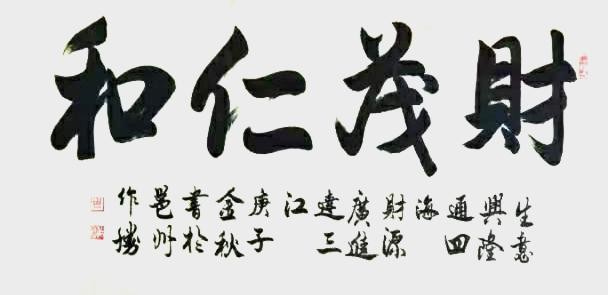 財茂仁和
生意
興隆
通四
海
財源
廣進
達三
江
庚子
金秋
書於
邕州
作勝